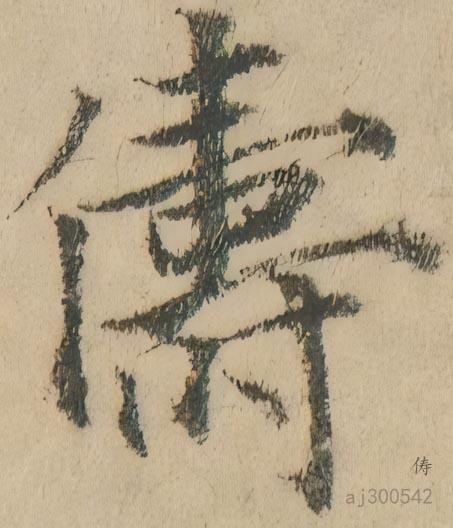 儔
俦
aj300542